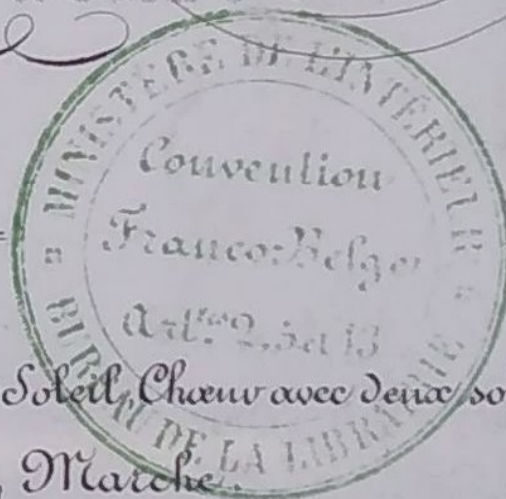 MINISTERE DE L'INTÉRIEUR
Convention
Franco-Belge
Art.
BUREAU DE LA LIBRAIRIE
Soleil, Chœur avec deux so
Marche.